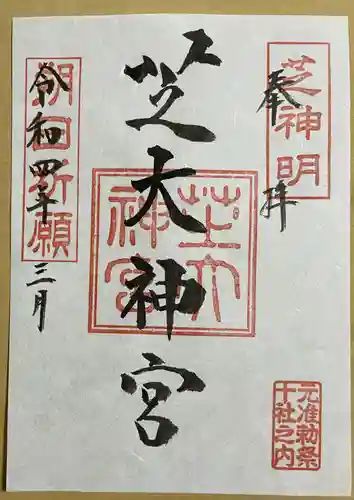 奉拝
芝神明
芝大神宮
芝大神宮
元准勅祭
十社之内
令和四年三月
朔日祈願